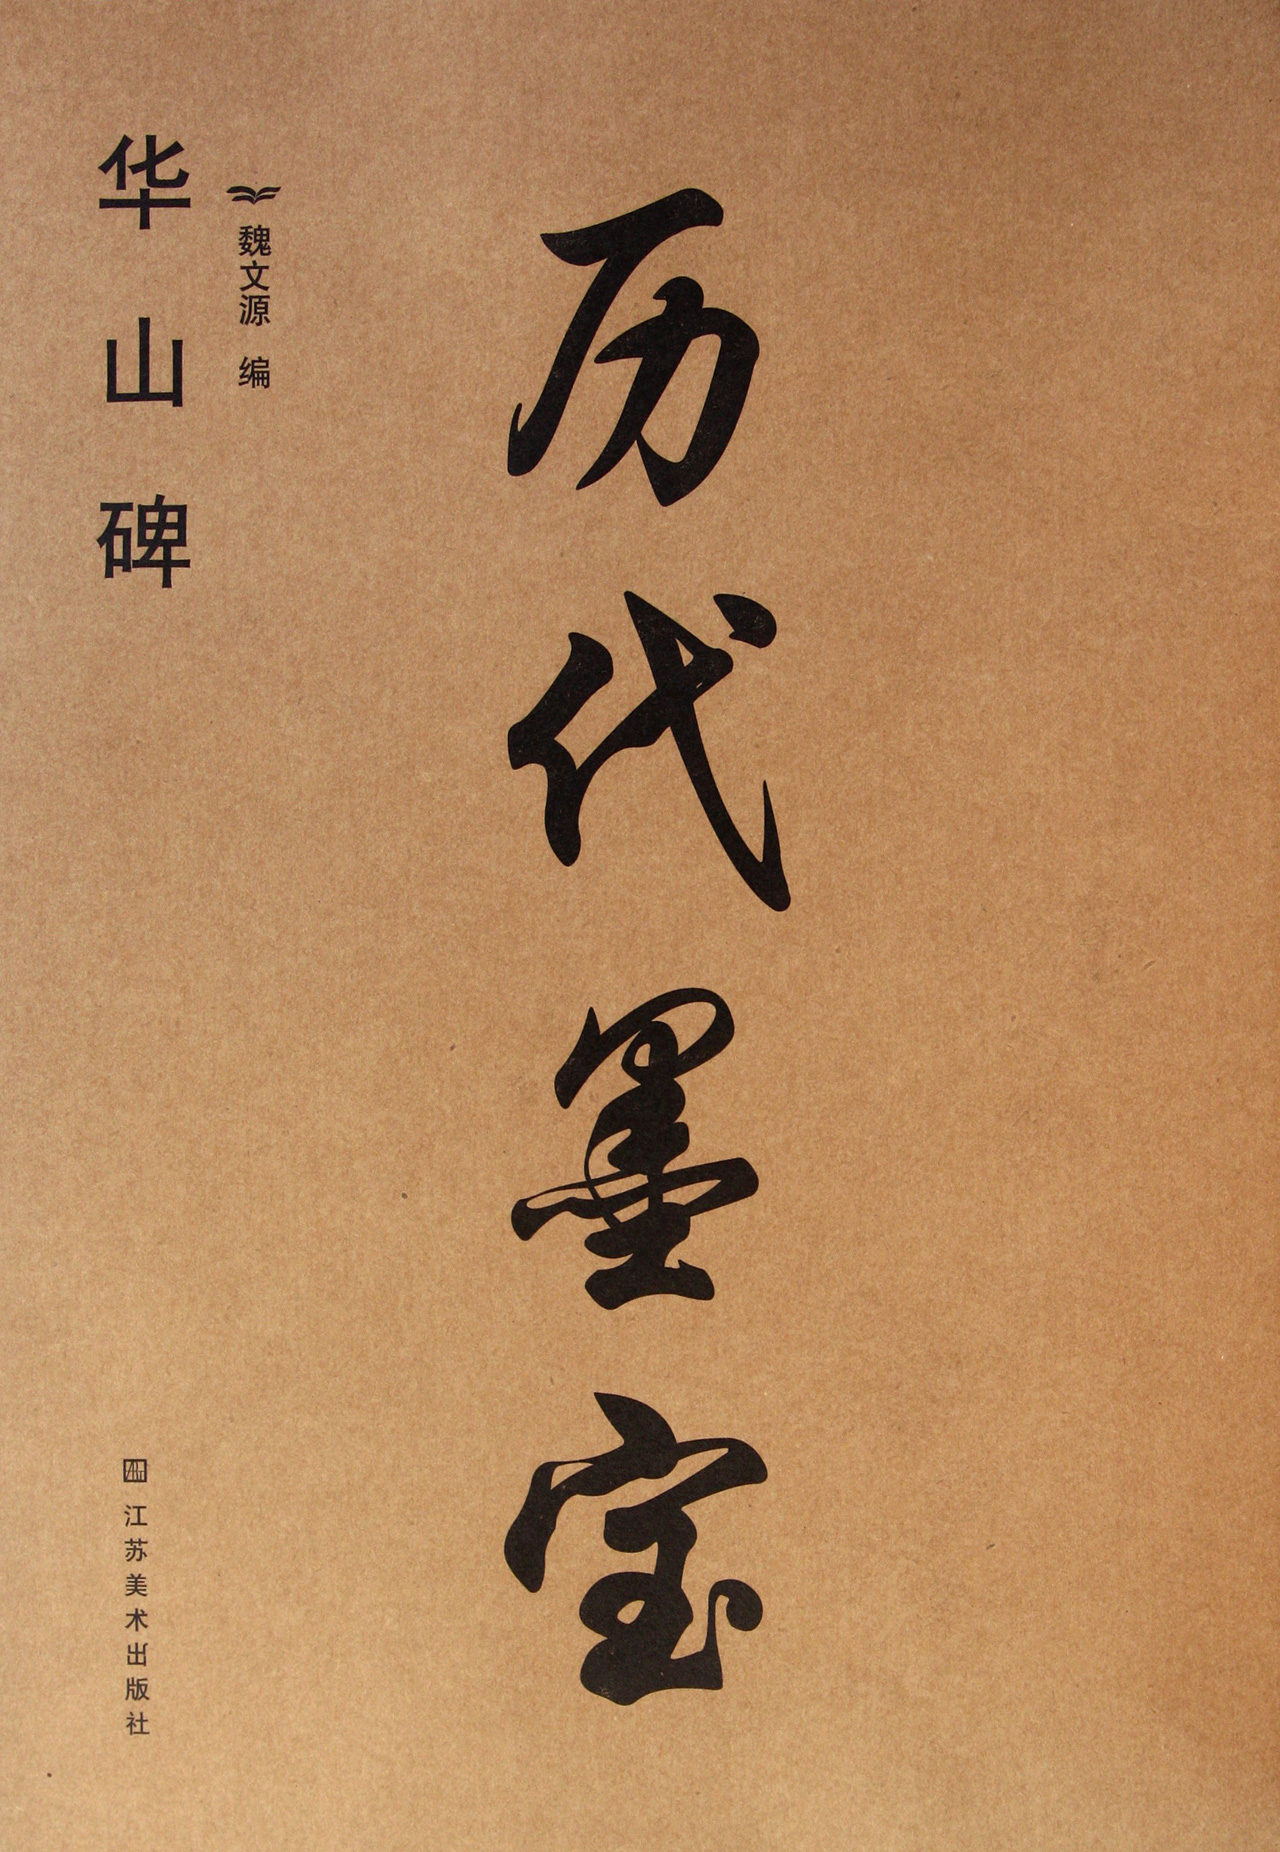 历代墨宝
魏文源 编
华山碑
江苏美术出版社